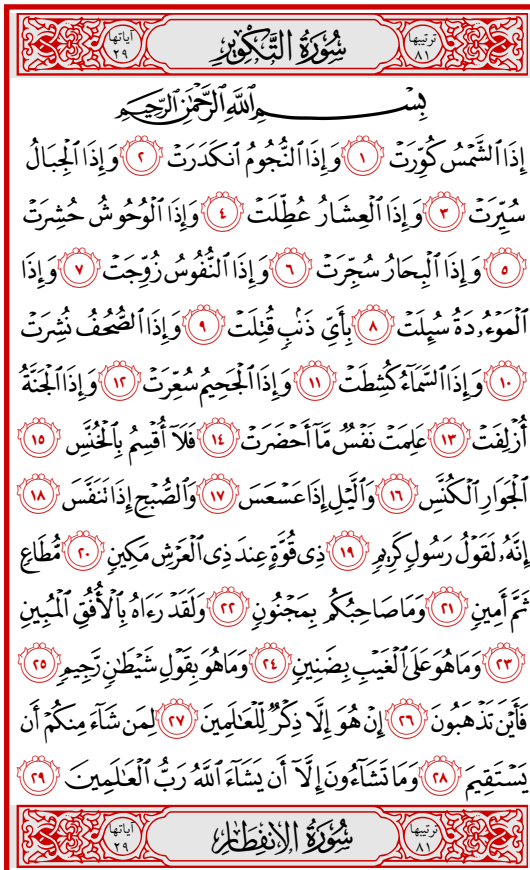 ترتيبها ٨١ سُورَةُ التَّكْوِيرِ آياتها ٢٩
بِسْمِ ٱللَّهِ ٱلرَّحْمَٰنِ ٱلرَّحِيمِ
إِذَا ٱلشَّمْسُ كُوِّرَتْ ١ وَإِذَا ٱلنُّجُومُ ٱنكَدَرَتْ ٢ وَإِذَا ٱلْجِبَالُ
سُيِّرَتْ ٣ وَإِذَا ٱلْعِشَارُ عُطِّلَتْ ٤ وَإِذَا ٱلْوُحُوشُ حُشِرَتْ
٥ وَإِذَا ٱلْبِحَارُ سُجِّرَتْ ٦ وَإِذَا ٱلنُّفُوسُ زُوِّجَتْ ٧ وَإِذَا
ٱلْمَوْءُۥدَةُ سُئِلَتْ ٨ بِأَيِّ ذَنۢبٍ قُتِلَتْ ٩ وَإِذَا ٱلصُّحُفُ نُشِرَتْ
١٠ وَإِذَا ٱلسَّمَآءُ كُشِطَتْ ١١ وَإِذَا ٱلْجَحِيمُ سُعِّرَتْ ١٢ وَإِذَا ٱلْجَنَّةُ
أُزْلِفَتْ ١٣ عَلِمَتْ نَفْسٌ مَّآ أَحْضَرَتْ ١٤ فَلَآ أُقْسِمُ بِٱلْخُنَّسِ ١٥
ٱلْجَوَارِ ٱلْكُنَّسِ ١٦ وَٱلَّيْلِ إِذَا عَسْعَسَ ١٧ وَٱلصُّبْحِ إِذَا تَنَفَّسَ ١٨
إِنَّهُۥ لَقَوْلُ رَسُولٍ كَرِيمٍ ١٩ ذِى قُوَّةٍ عِندَ ذِى ٱلْعَرْشِ مَكِينٍ ٢٠ مُّطَاعٍ
ثَمَّ أَمِينٍ ٢١ وَمَا صَاحِبُكُم بِمَجْنُونٍ ٢٢ وَلَقَدْ رَءَاهُ بِٱلْأُفُقِ ٱلْمُبِينِ
٢٣ وَمَا هُوَ عَلَى ٱلْغَيْبِ بِضَنِينٍ ٢٤ وَمَا هُوَ بِقَوْلِ شَيْطَٰنٍ رَّجِيمٍ ٢٥
فَأَيْنَ تَذْهَبُونَ ٢٦ إِنْ هُوَ إِلَّا ذِكْرٌ لِّلْعَٰلَمِينَ ٢٧ لِمَن شَآءَ مِنكُمْ أَن
يَسْتَقِيمَ ٢٨ وَمَا تَشَآءُونَ إِلَّآ أَن يَشَآءَ ٱللَّهُ رَبُّ ٱلْعَٰلَمِينَ ٢٩
ترتيبها ٨١ سُورَةُ الِانفِطَارِ آياتها ٢٩